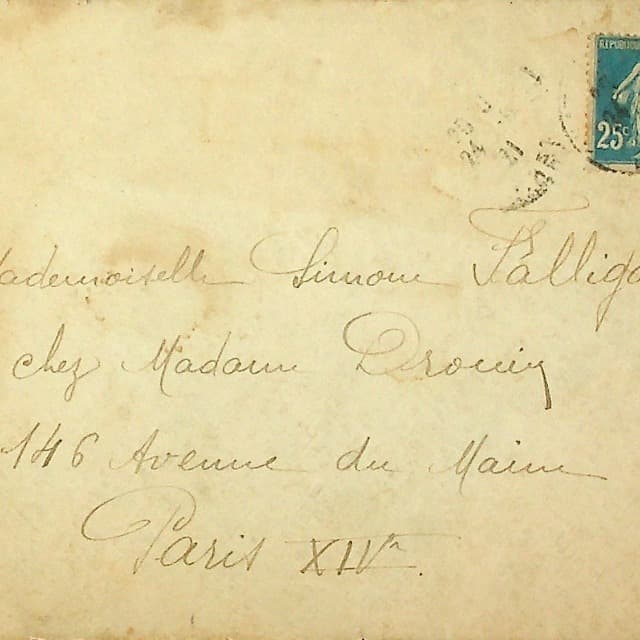 RÉPUBLIQUE
25c
Mademoiselle Simone Falliga
chez Madame Drouin
146 Avenue du Maine
Paris XIVe.